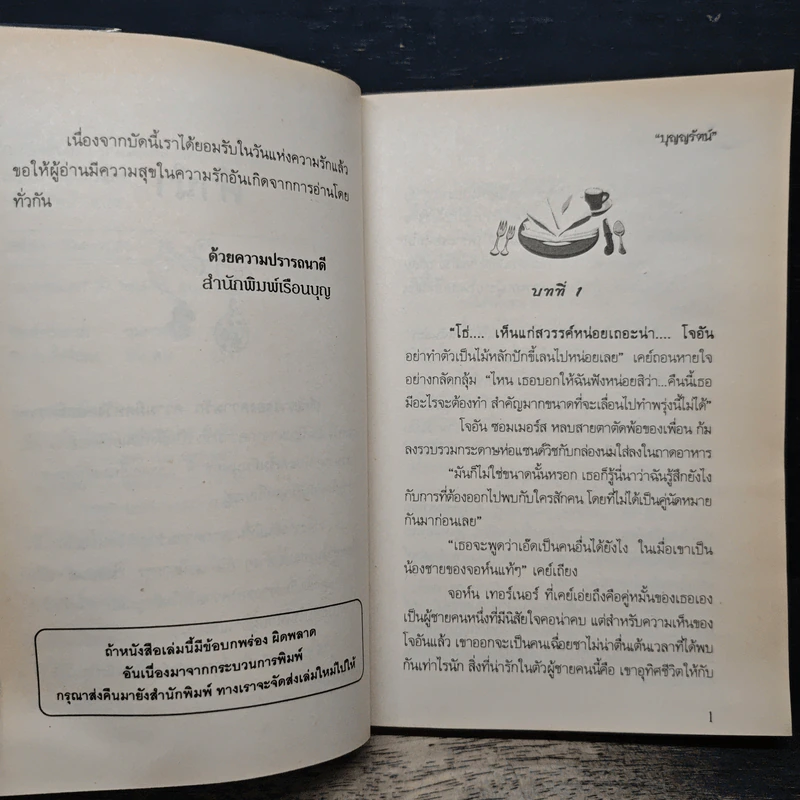 เนื่องจากบัดนี้เราได้ยอมรับในวันแห่งความรักแล้ว
ขอให้ผู้อ่านมีความสุขในความรักอันเกิดจากการอ่านโดย
ทั่วกัน
ด้วยความปรารถนาดี
สำนักพิมพ์เรือนบุญ
ถ้าหนังสือเล่มนี้มีข้อบกพร่อง ผิดพลาด
อันเนื่องมาจากกระบวนการพิมพ์
กรุณาส่งคืนมายังสำนักพิมพ์ ทางเราจะจัดส่งเล่มใหม่ไปให้
"บุญญรัตน์"
บทที่ 1
"โธ่.... เห็นแก่สวรรค์หน่อยเถอะน่า.... โจอัน
อย่าทำตัวเป็นไม้หลักปักขี้เลนไปหน่อยเลย" เคย์ถอนหายใจ
อย่างกลัดกลุ้ม "ไหน เธอบอกให้ฉันฟังหน่อยสิว่า...คืนนี้เธอ
มีอะไรจะต้องทำ สำคัญมากขนาดที่จะเลื่อนไปทำพรุ่งนี้ไม่ได้"
โจอัน ซอมเมอร์ส หลบสายตาตัดพ้อของเพื่อน ก้ม
ลงรวบรวมกระดาษห่อแซนด์วิชกับกล่องนมใส่ลงในถาดอาหาร
"มันก็ไม่ใช่ขนาดนั้นหรอก เธอก็รู้นี่นาว่าฉันรู้สึกยังไง
กับการที่ต้องออกไปพบกับใครสักคน โดยที่ไม่ได้เป็นคู่นัดหมาย
กันมาก่อนเลย"
"เธอจะพูดว่าเอ็ดเป็นคนอื่นได้ยังไง ในเมื่อเขาเป็น
น้องชายของจอห์นแท้ๆ" เคย์เถียง
จอห์น เทอร์เนอร์ ที่เคย์เอ่ยถึงคือคู่หมั้นของเธอเอง
เป็นผู้ชายคนหนึ่งที่มีนิสัยใจคอน่าคบ แต่สำหรับความเห็นของ
โจอันแล้ว เขาออกจะเป็นคนเฉื่อยชาไม่น่าตื่นเต้นเวลาที่ได้พบ
กันเท่าไรนัก สิ่งที่น่ารักในตัวผู้ชายคนนี้คือ เขาอุทิศชีวิตให้กับ
1